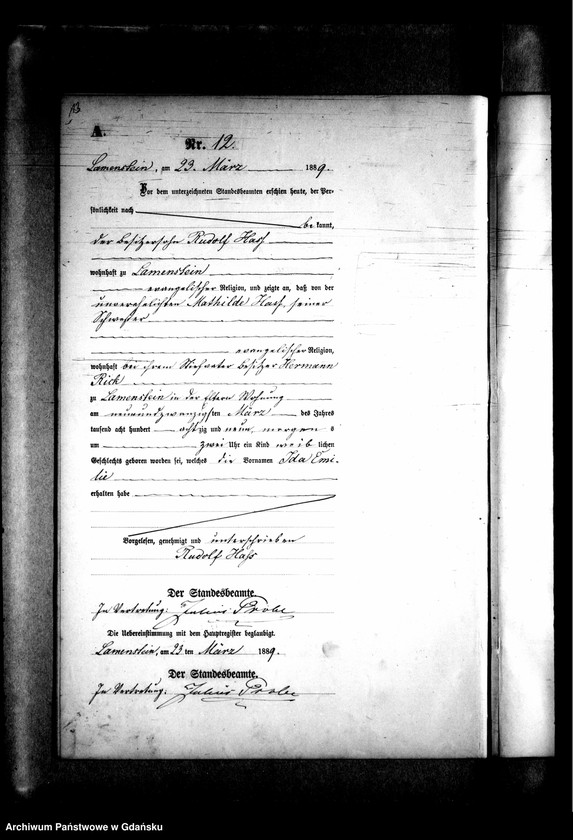 A.
Nr. 12.
Lamenstein, am 23. März 1889.
Vor dem unterzeichneten Standesbeamten erschien heute, der Per-
sönlichkeit nach
bekannt,
der Besitzersohn Rudolf Hass
wohnhaft zu Lamenstein
evangelischer Religion, und zeigte an, daß von der
unverehelichten Mathilde Hass, seiner
Schwester
evangelischer Religion,
wohnhaft bei ihrem Stiefvater Besitzer Hermann
Rick
zu Lamenstein in der Eltern Wohnung
am ten März des Jahres
tausend acht hundert achtzig und neun, morgens
um zwei Uhr ein Kind weiblichen
Geschlechts geboren worden sei, welches die Vornamen Ida Emi-
lie
erhalten habe
Vorgelesen, genehmigt und unterschrieben
Rudolf Hass
Der Standesbeamte.
In Vertretung: Julius Probe
Die Uebereinstimmung mit dem Hauptregister beglaubigt.
Lamenstein, am 23 ten März 1889.
Der Standesbeamte.
In Vertretung: Julius Probe
Archiwum Państwowe w Gdańsku